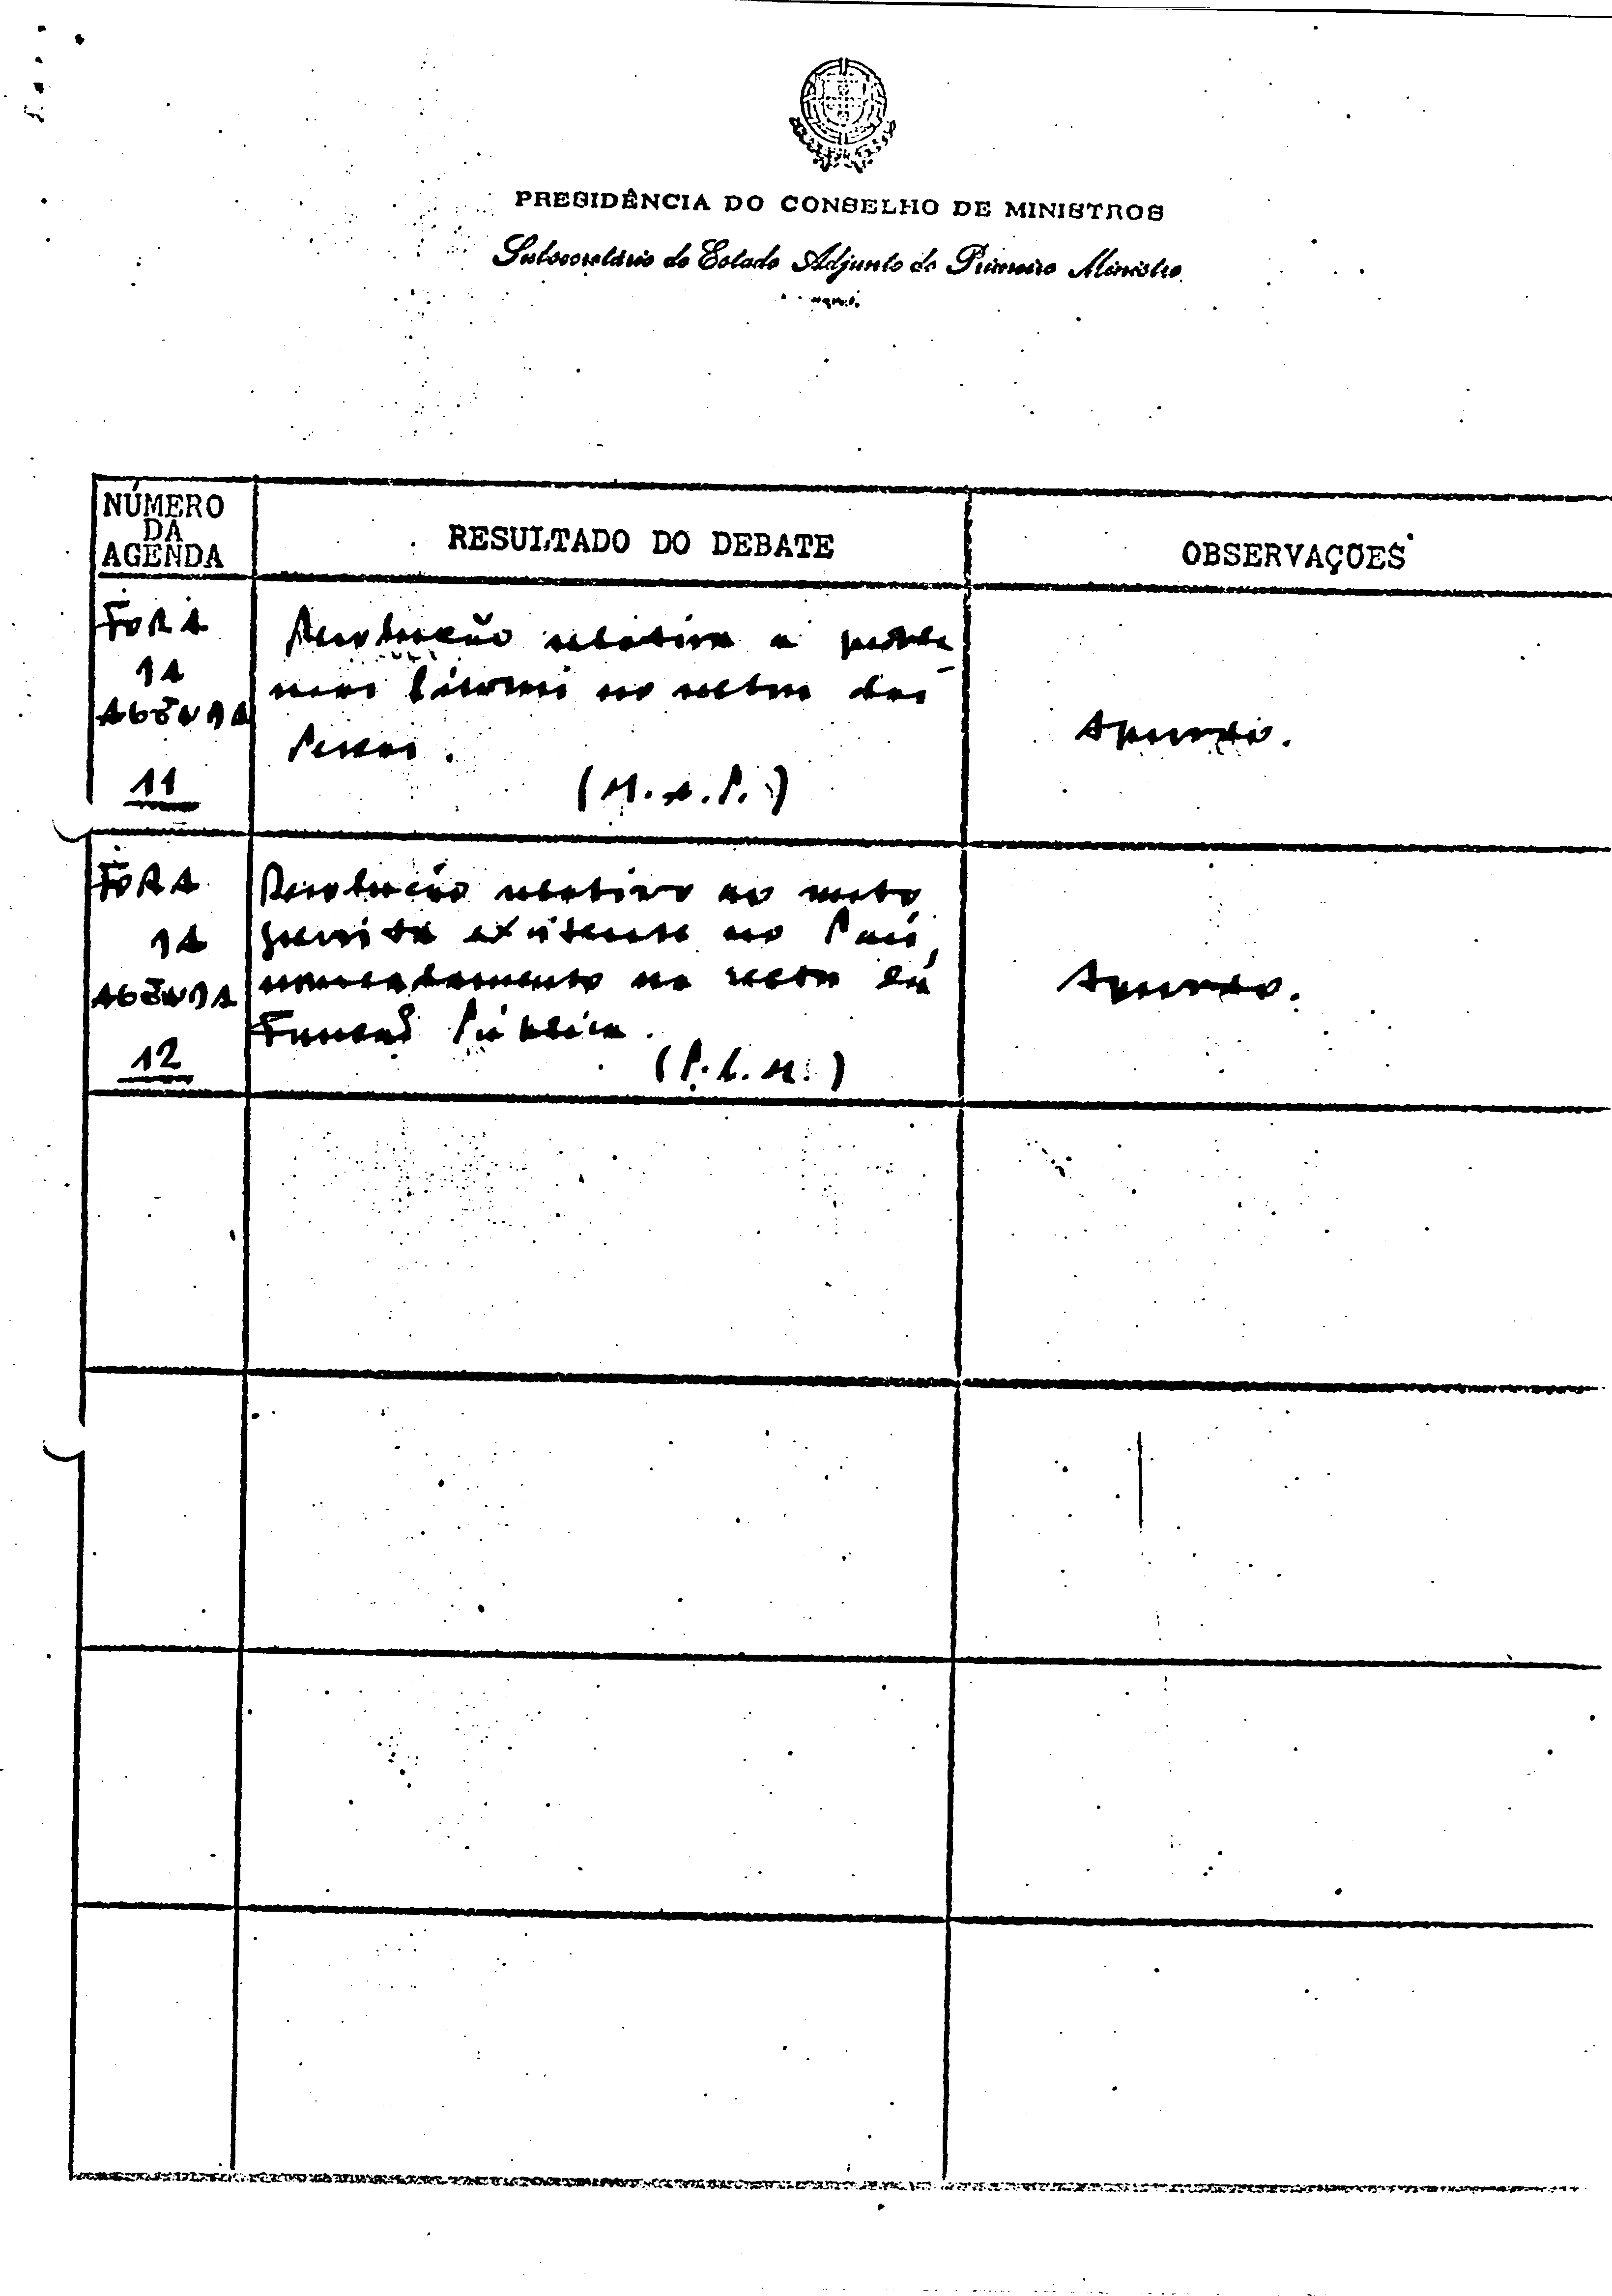 PRESIDÊNCIA DO CONSELHO DE MINISTROS
Subsecretário de Estado Adjunto do Primeiro Ministro
NÚMERO
DA
AGENDA
RESULTADO DO DEBATE
OBSERVAÇÕES
FORA
DA
AGENDA
11
Resolução relativa a
no sector das
Pescas.
(M.A.P.)
Aprovado.
FORA
DA
AGENDA
12
Resolução relativa ao
existente no País,
nomeadamente no sector da
Função Pública.
Aprovado.